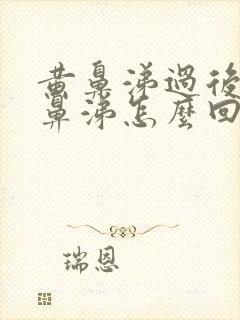 黄鼻涕過後
鼻涕怎麼回
瑞恩